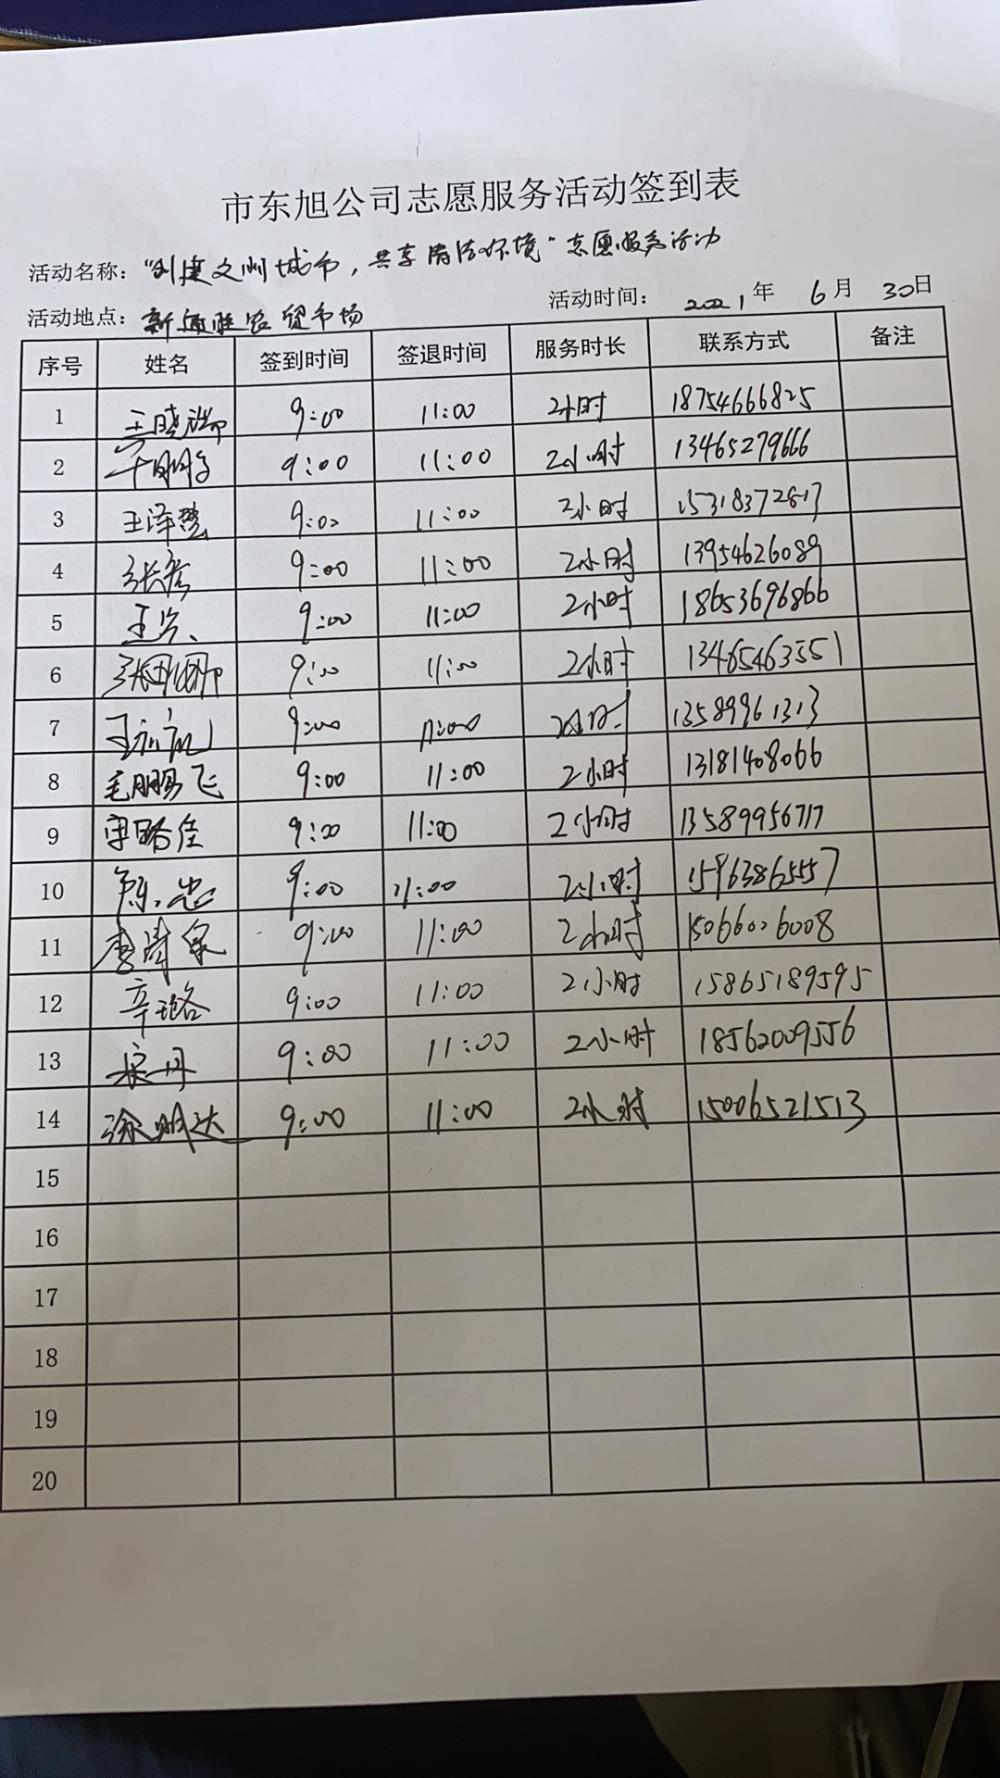 市东旭公司志愿服务活动签到表
活动名称："创建文明城市，共享清洁环境"志愿服务活动
活动地点：新 农贸市场 活动时间： 2021年 6月 30日
序号 姓名 签到时间 签退时间 服务时长 联系方式 备注
1 王晓瑞 9:00 11:00 2小时 18754666825
2 9:00 11:00 2小时 13465279666
3 王泽慧 9:00 11:00 2小时 15318372817
4 张 9:00 11:00 2小时 13954626089
5 王 9:00 11:00 2小时 18653696866
6 张娜娜 9:00 11:00 2小时 13465463551
7 王 9:00 11:00 2小时 13589961313
8 毛鹏飞 9:00 11:00 2小时 13181408066
9 宋璐佳 9:00 11:00 2小时 13589956717
10 陈忠 9:00 11:00 2小时 15963865557
11 李 泉 9:00 11:00 2小时 15066026008
12 辛璐 9:00 11:00 2小时 15865189595
13 宋丹 9:00 11:00 2小时 18562009556
14 徐明达 9:00 11:00 2小时 15006521513
15
16
17
18
19
20